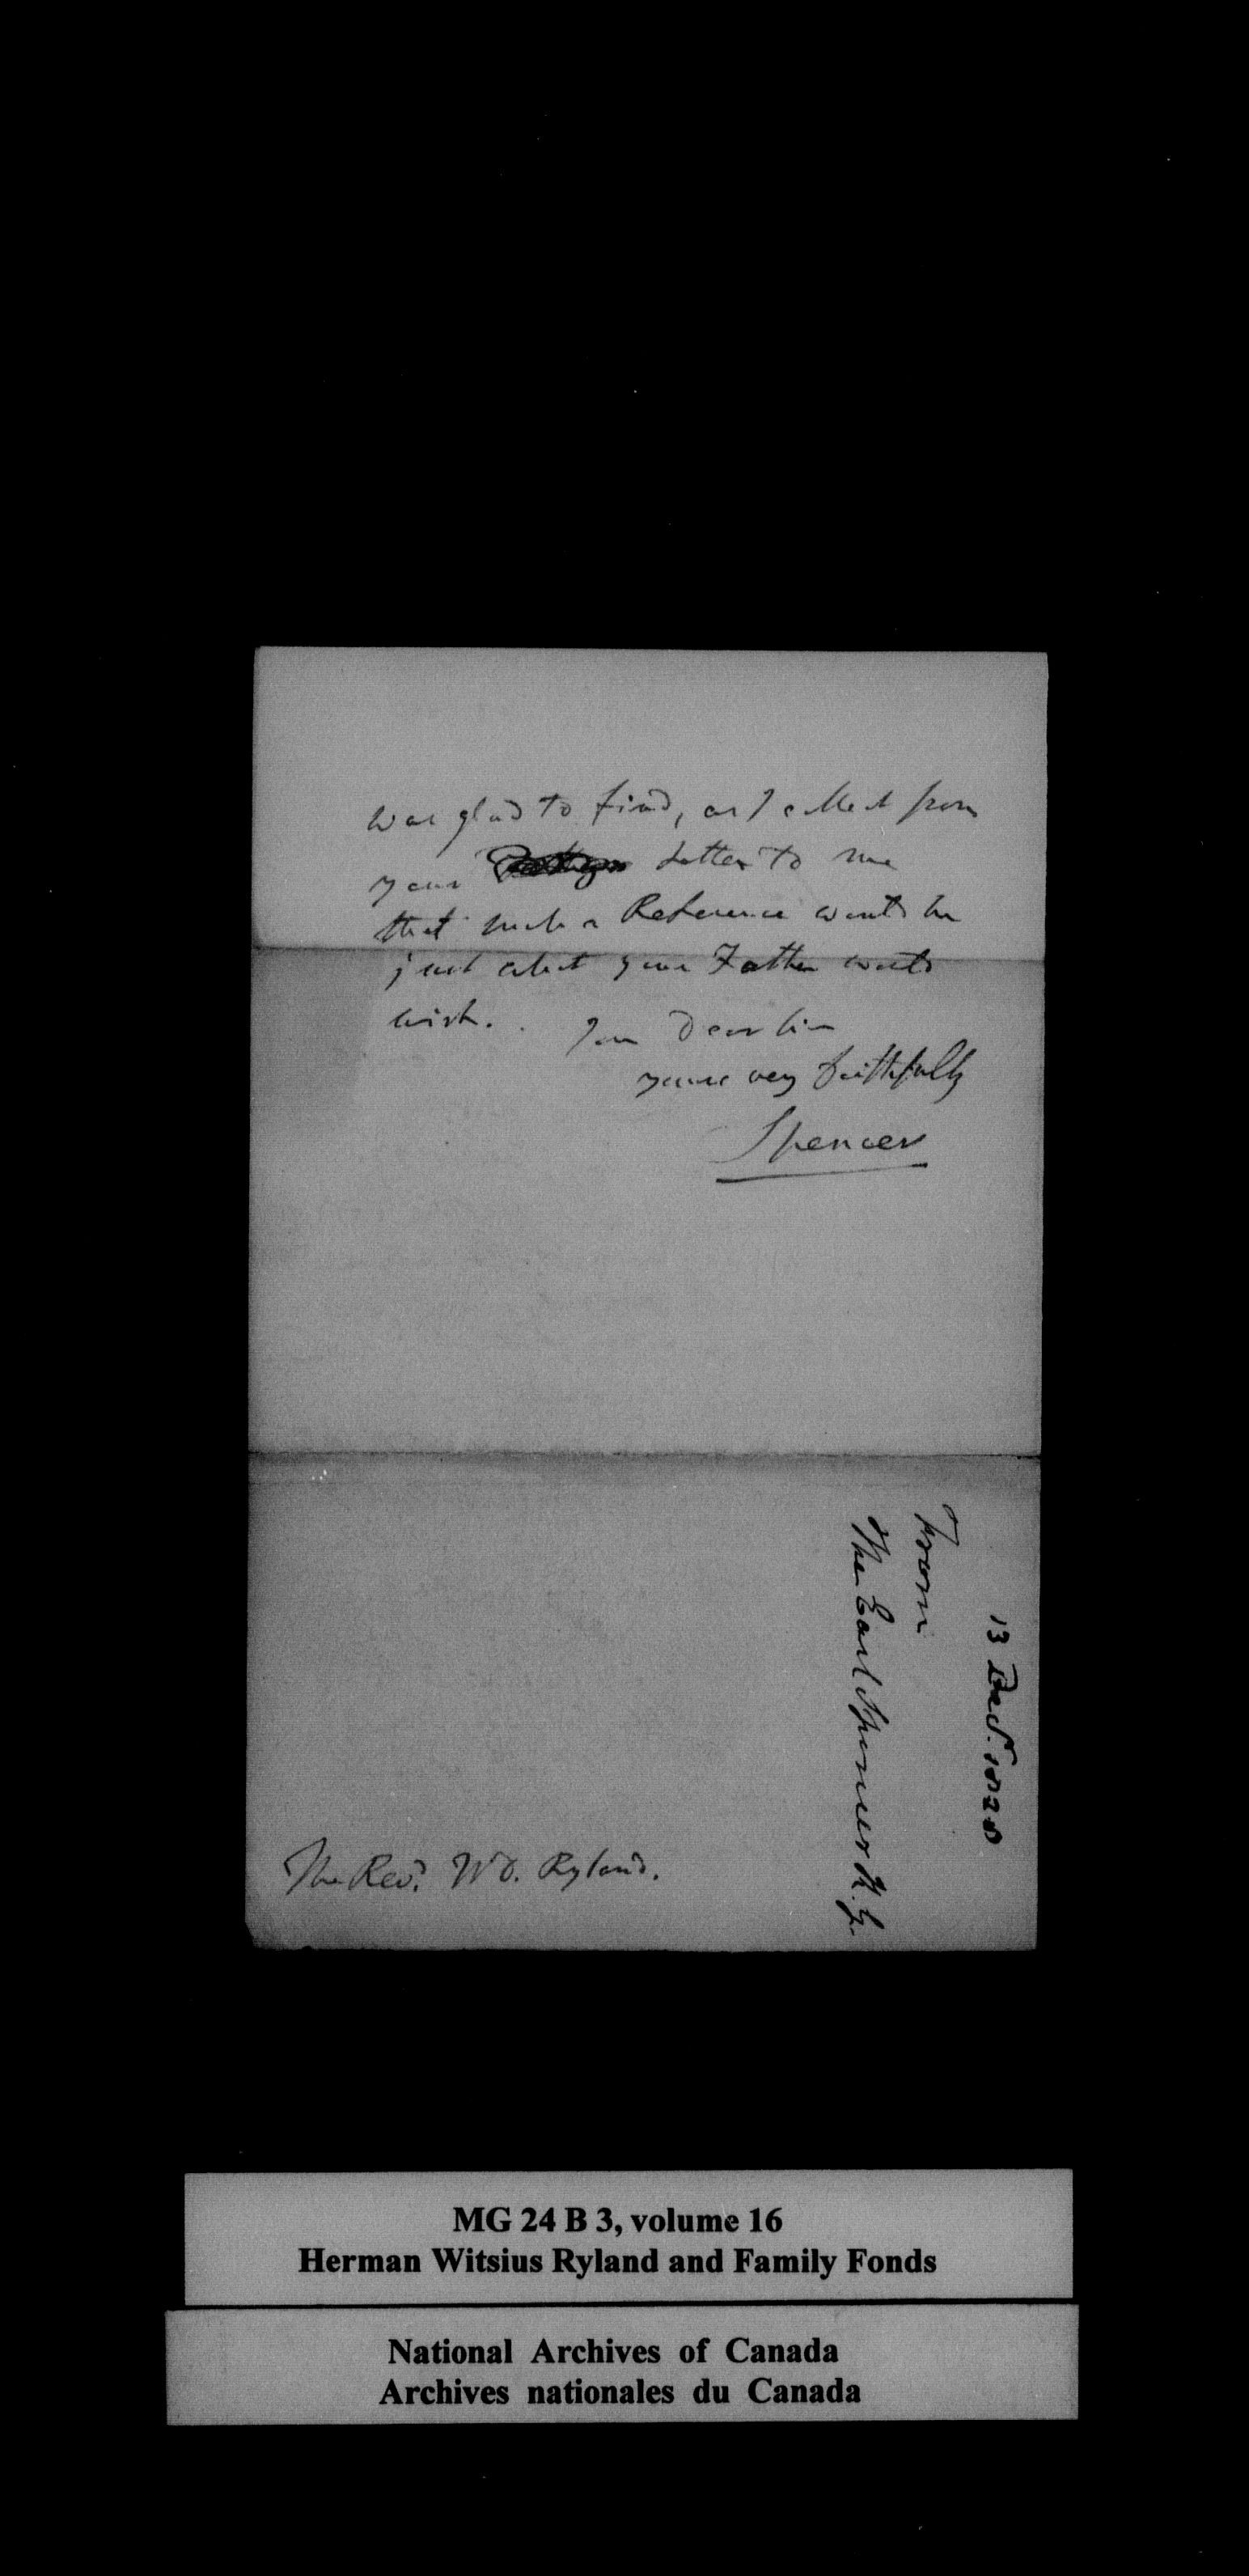 was glad to find, as I collect from
your Letter to me
that such a Reference would be
just what your Father would
wish. I am Dear Sir
yours very faithfully
Spencer
13 Dec.r 1828
From
The Earl Spencer K.G.
The Rev.d W D. Ryland.
MG 24 B 3, volume 16
Herman Witsius Ryland and Family Fonds
National Archives of Canada
Archives nationales du Canada